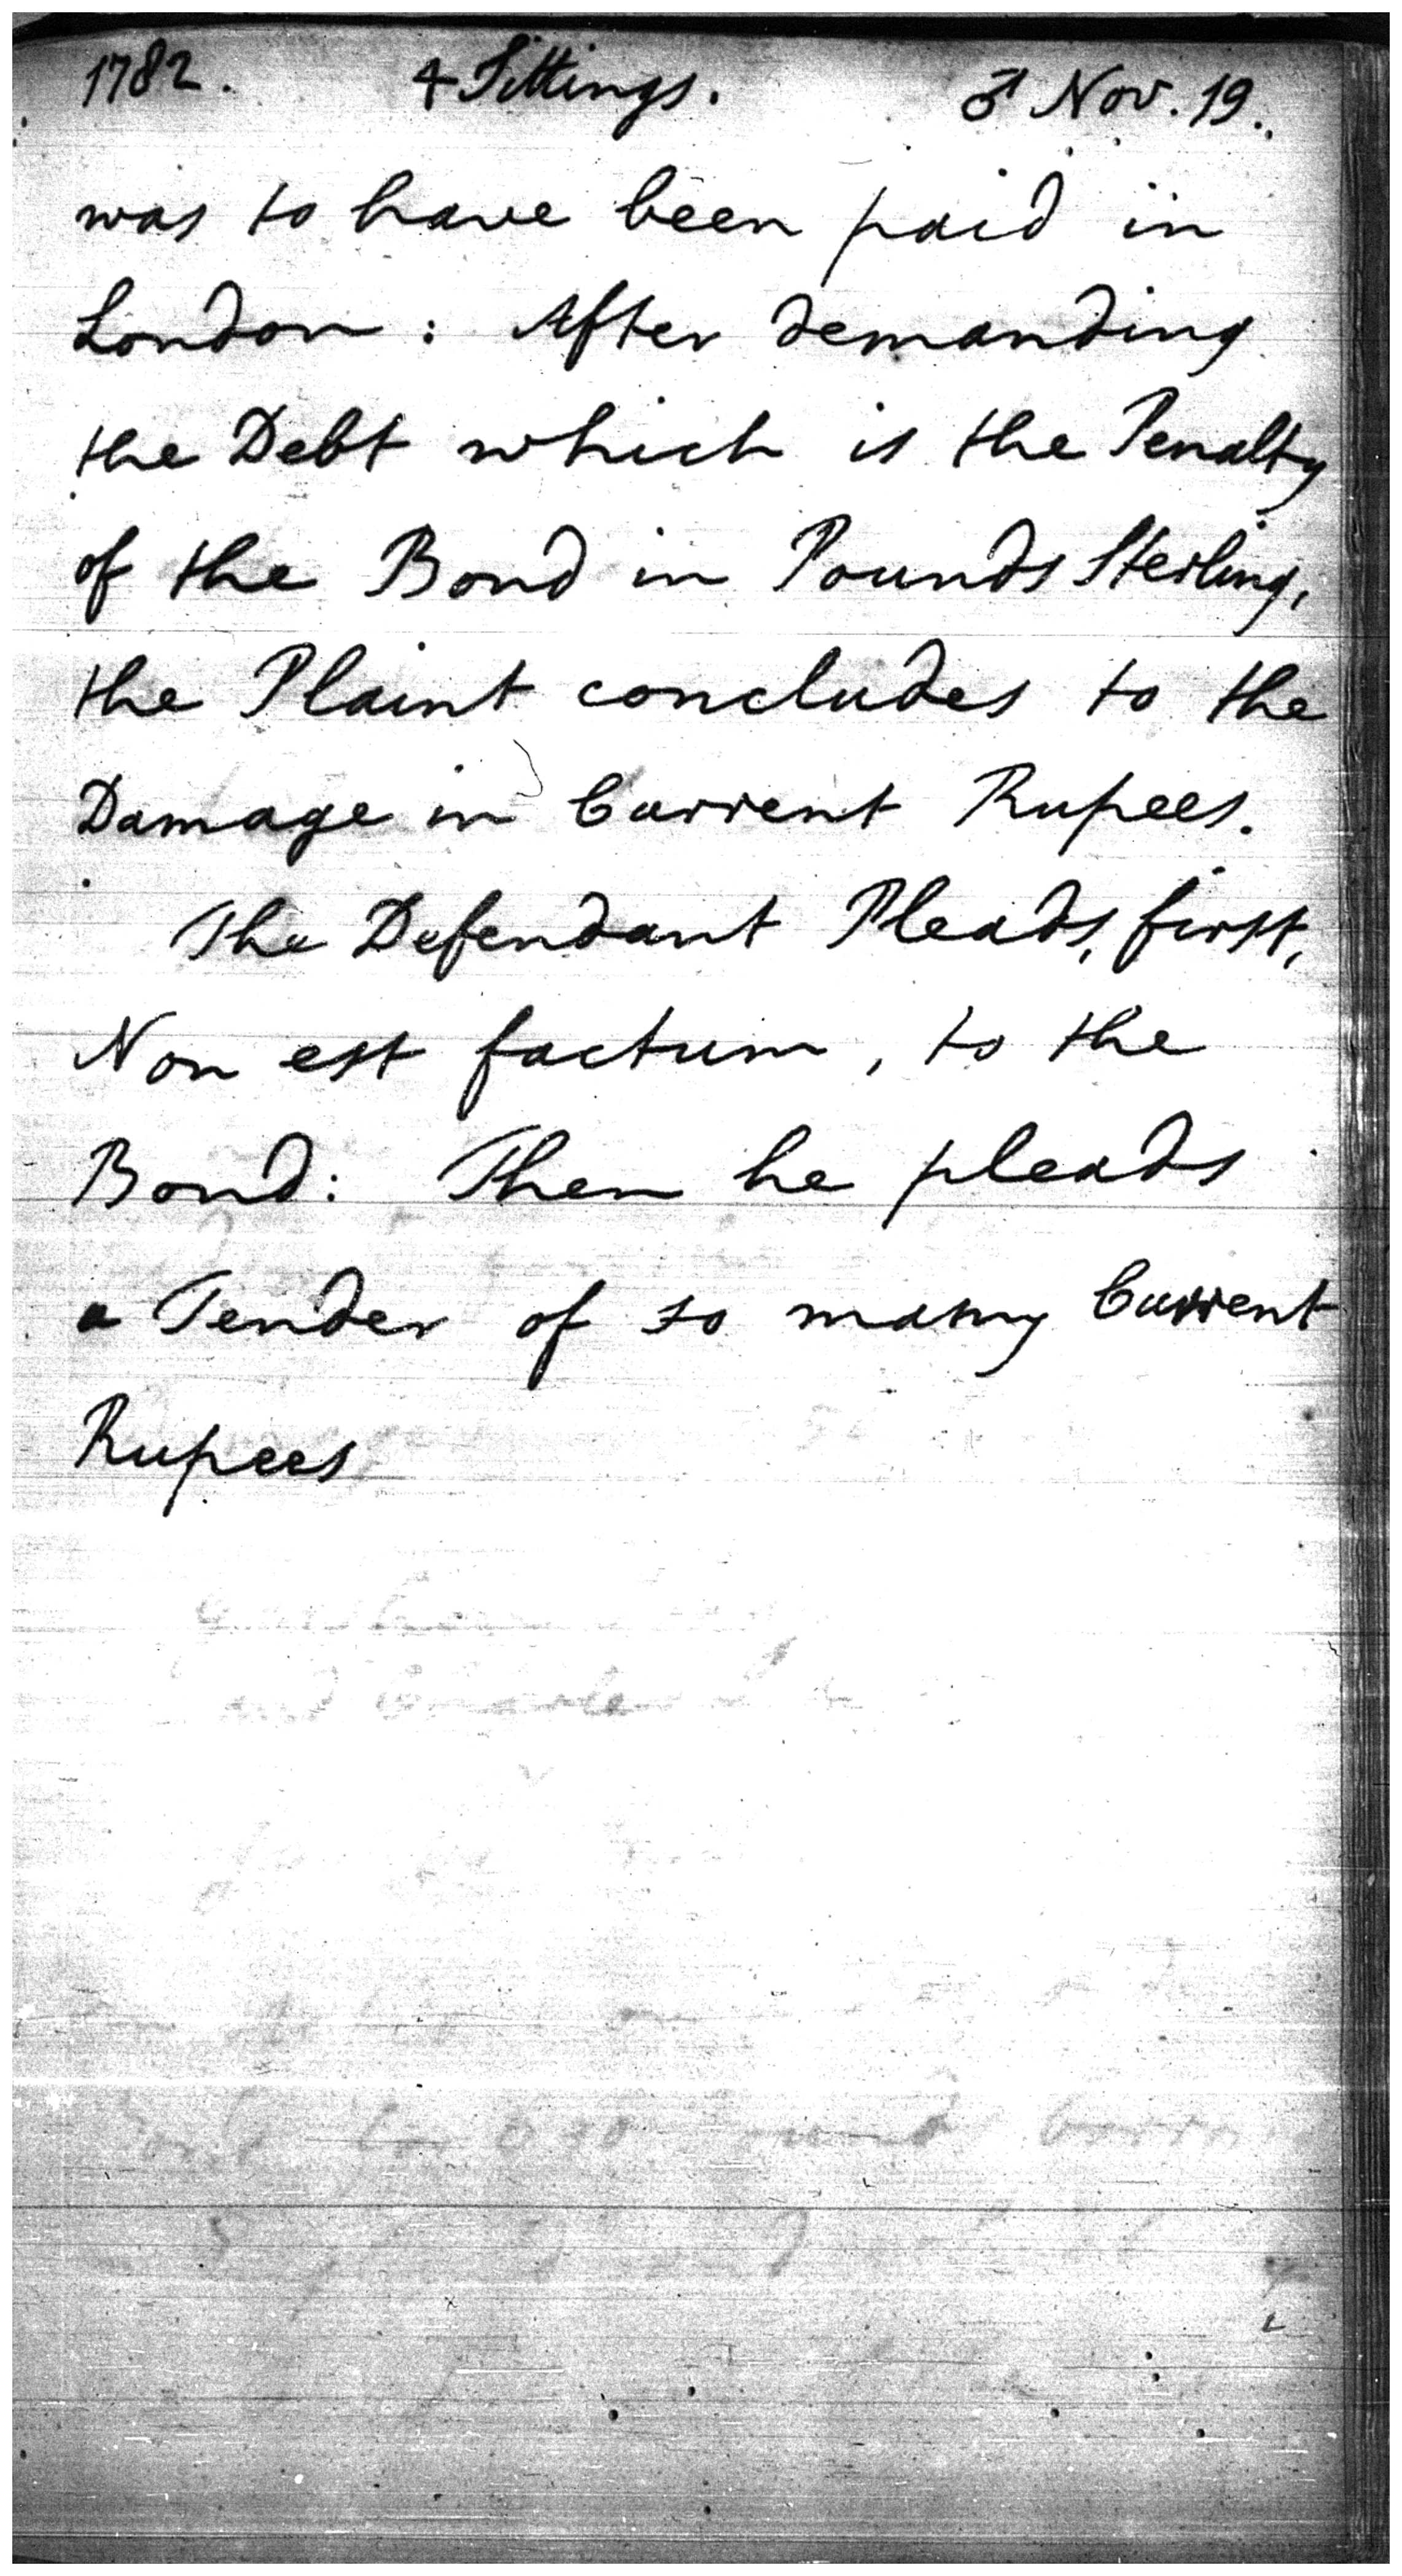 1782. 4 Sittings. ♂ Nov. 19.
was to have been paid in
London: After demanding
the Debt which is the Penalty
of the Bond in Pounds Sterling,
the Plaint concludes to the
Damage in Current Rupees.
The Defendant Pleads, first,
Non est factum, to the
Bond: Then he pleads
a Tender of so many Current
Rupees